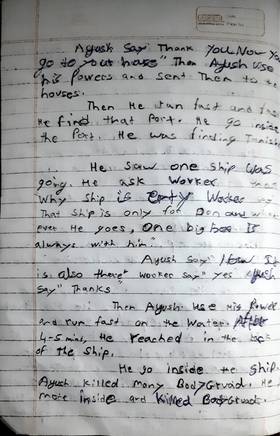 Ayush Say "Thank You. Now You
go to your house" Then Ayush use
his Powers and sent Them to the
houses.
Then He run fast and
He find that Port. He go inside
the Port. He was finding
He saw one ship was
going. He ask worker
Why ship is
That ship is only for Don and
ever He goes, One big is
always with him."
Ayush Say
is also there" worker say" yes
Say" Thanks"
Then Ayush use His Power
and run fast on the water. After
4-5 mins, He reached in the
of the Ship.
He go inside the Ship.
Ayush killed many BodyGruad. He
more inside and killed BodyGruad.